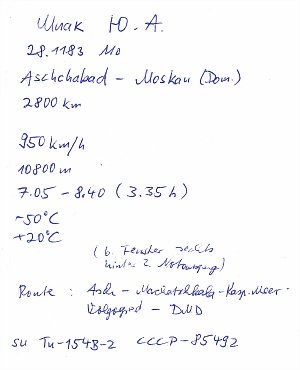 Шпак Ю. А.
28.11.83 Mo
Aschchabad – Moskau (Dom.)
2800 km
950 km/h
10800 m
7.05 – 8.40 (3.35 h)
-50°C
+20°C
(6. Fenster rechts
hinter 2. Notausgang)
Route : Asch - Machatschkala - Kasp. Meer -
Wolgograd – DMD
SU Tu-154B-2 CCCP-85492